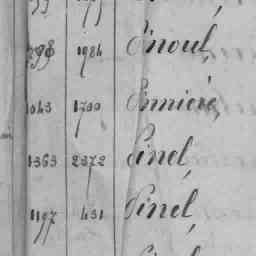 398 1984 Pinoul,
1043 1700 Pinnieré,
1363 2372 Pinel,
1197 431 Pinel,